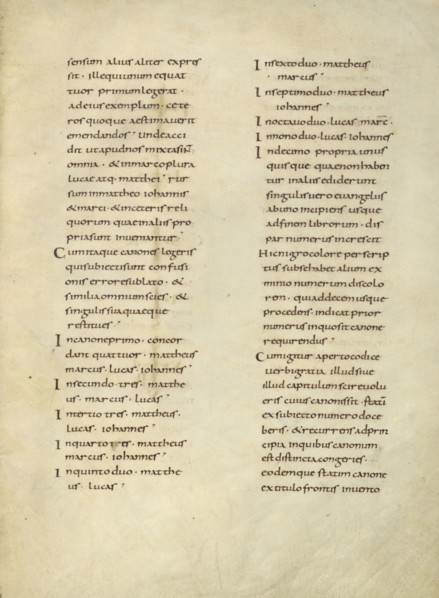 sensum alius aliter expres
sit · ille qui unum e quat
tuor primum legerat ·
ad eius exemplum · cete
ros quoque aestimaverit
emendandos · unde acci
dit ut apud nos mixta sint
omnia · & in marco plura
lucae atq. matthei · rur
sum in mattheo iohannis
& marci · & in ceteris reli
quorum quae in aliis pro
pria sunt inveniantur ·
Cum itaque canones legeris
qui subiecti sunt confusi
onis errore sublato · &
similia omnium scies · &
singulis sua quaeque
restitues ·
In canone primo · concor
dant quattuor · mattheus
marcus · lucas · iohannes ·
In secundo · tres · matthe
us · marcus · lucas ·
In tertio tres · mattheus ·
lucas · iohannes ·
In quarto tres · mattheus
marcus · iohannes ·
In quinto duo · matthe
us · lucas ·
In sexto duo · mattheus
· marcus ·
In septimo duo · mattheus
iohannes ·
In octavo duo · lucas marc̄ ·
In nono duo · lucas · iohannes
In decimo propria unus
quisque quae non haben
tur in aliis ediderunt
singulis vero evangeliis
ab uno incipiens usque
ad finem librorum · dis
par numerus increscit
Hic nigro colore perscrip
tus sub se habet alium ex
minio numerum discolo
rem · qui ad decem usque
procedens indicat prior
numerus in quo sit canone
requirendus ·
Cum igitur aperto codice
verbi gratia illud sive
illud capitulum scire volu
eris cuius canonis sit · statī
ex subiecto numero doce
beris · & recurrens ad prin
cipia in quibus canonum
est distincta congeries ·
eodemque statim canone
ex titulo frontis invento